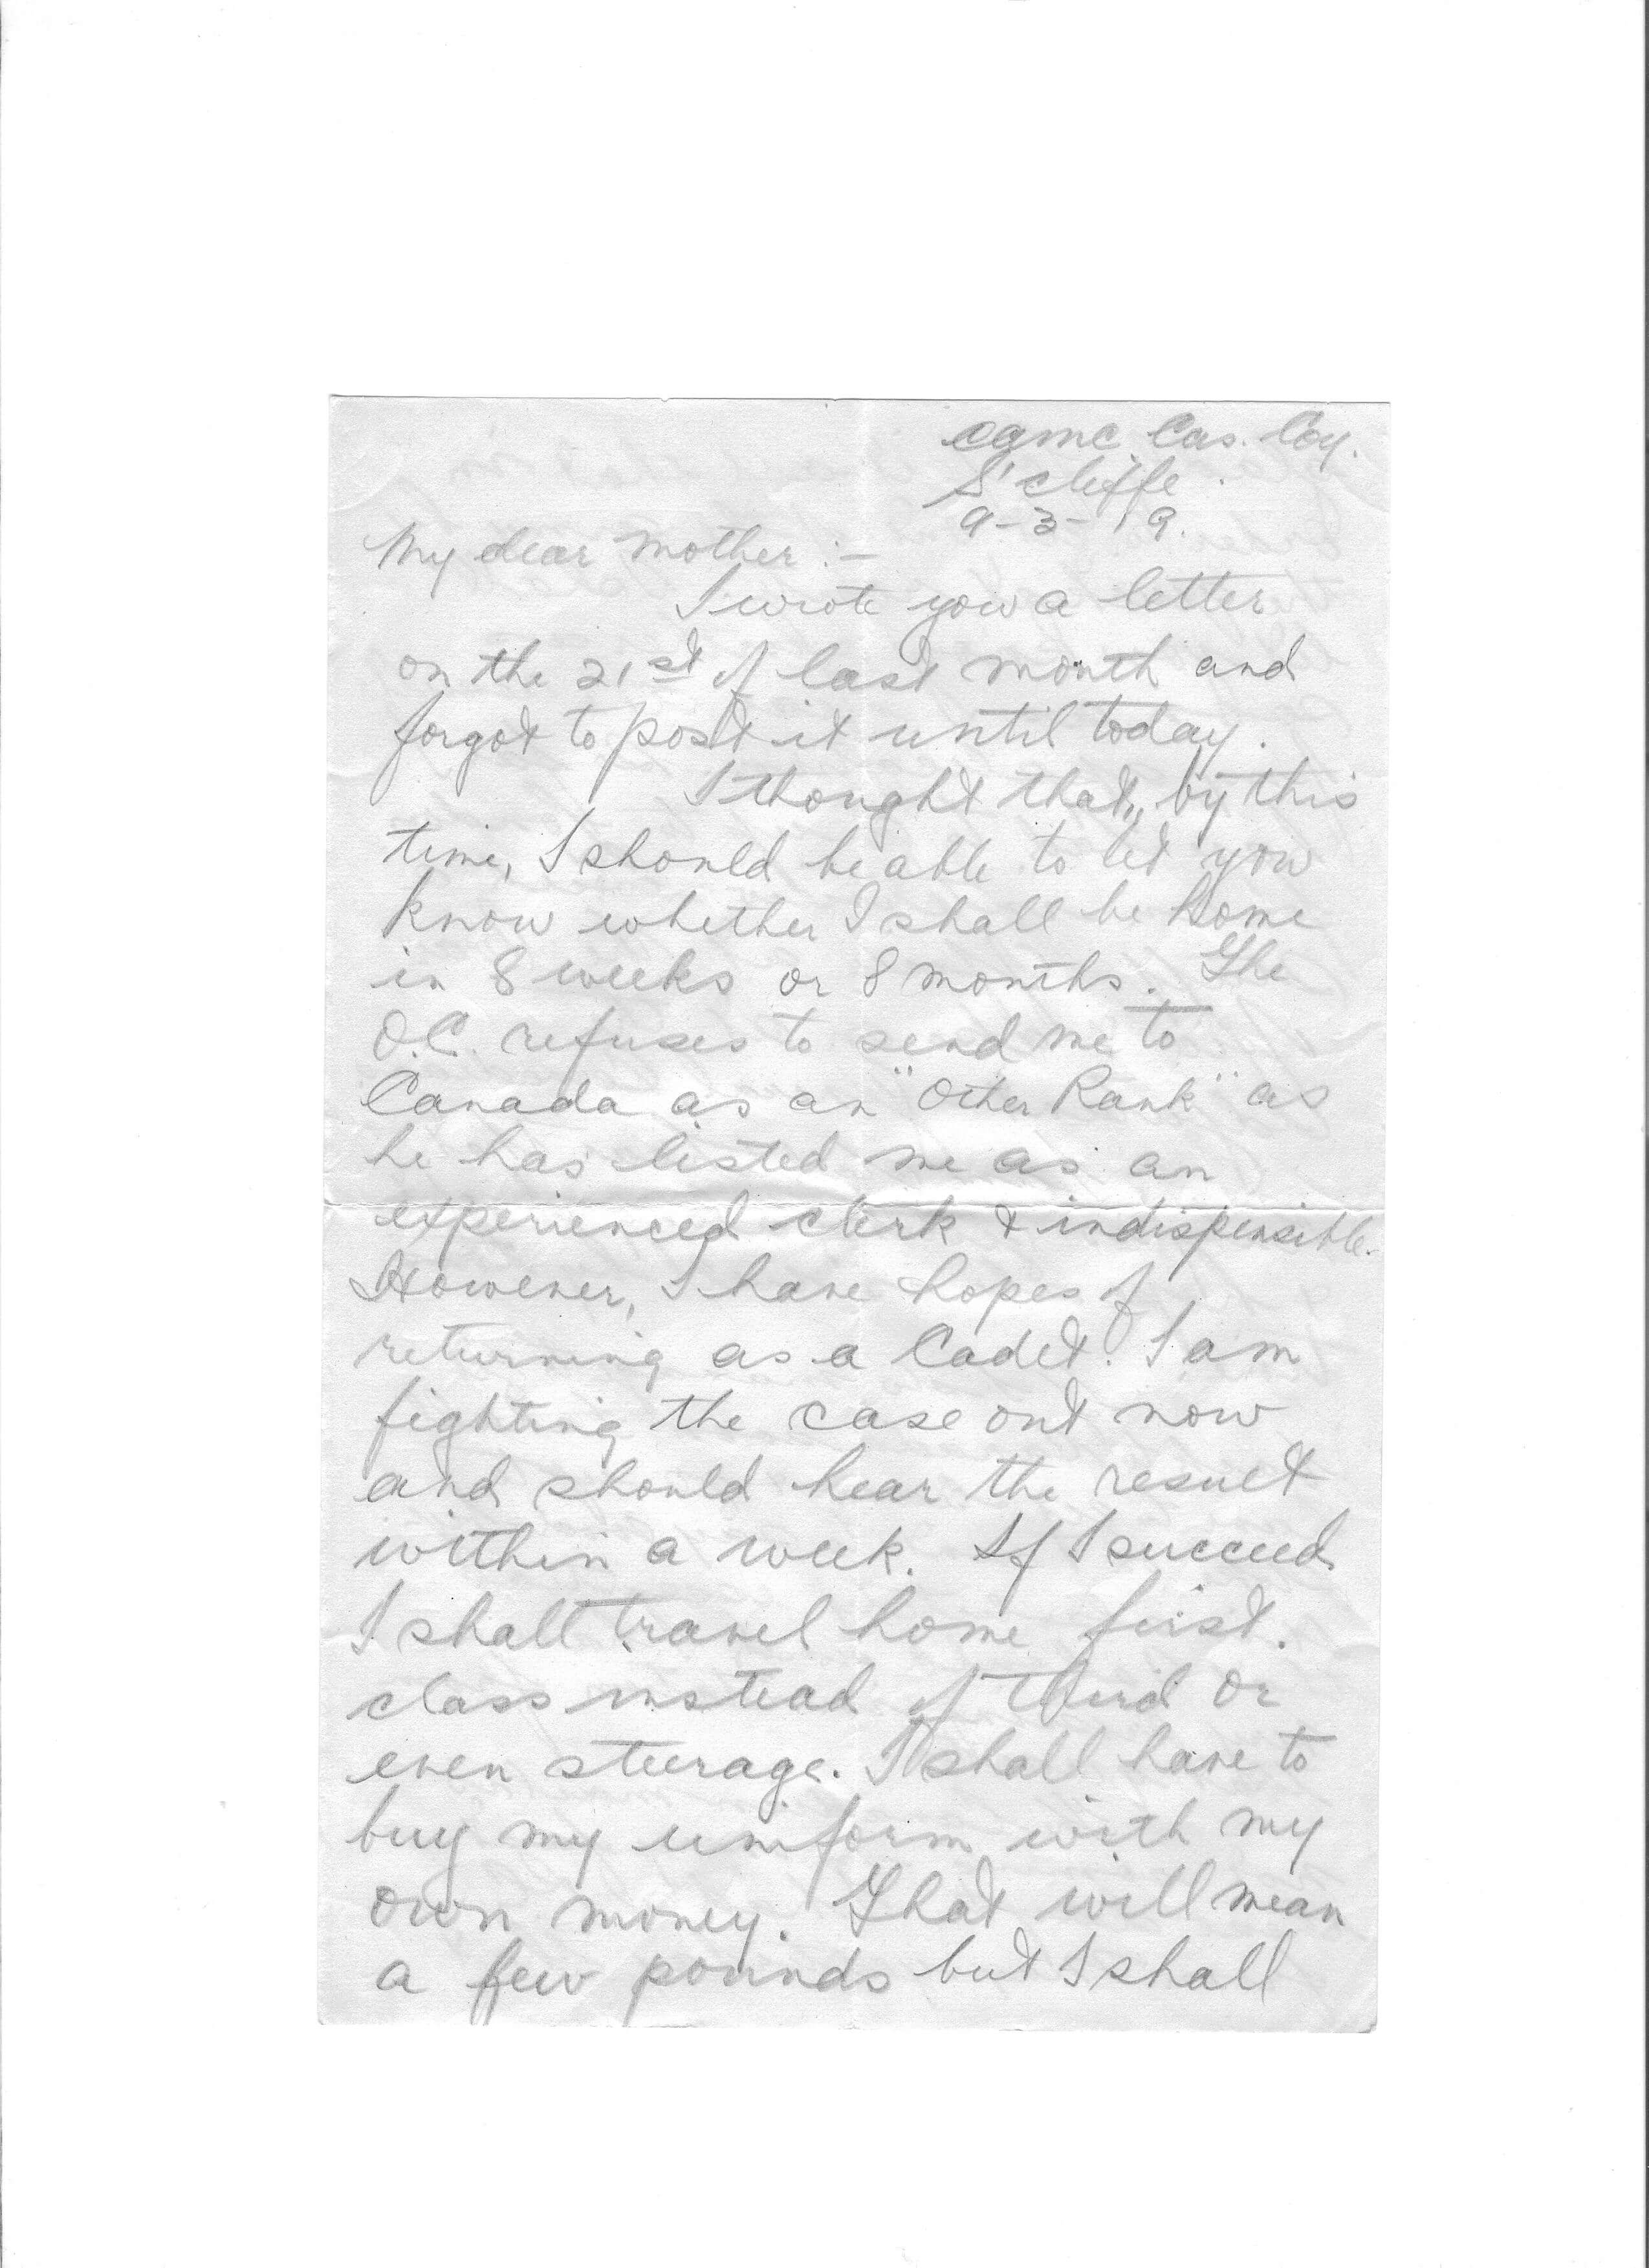 CAMC Cas. Coy.
S'cliffe.
9-3-19.
My dear Mother :-
I wrote you a letter
on the 21st of last month and
forgot to post it until today.
I thought that, by this
time, I should be able to let you
know whether I shall be home
in 8 weeks or 8 months. The
O.C. refuses to send me to
Canada as an "Other Rank" as
he has listed me as an
experienced clerk & indispensible.
However, I have hopes of
returning as a Cadet. I am
fighting the case out now
and should hear the result
within a week. If I succeed
I shall travel home first.
class instead of third or
even steerage. I shall have to
buy my uniform with my
own money. That will mean
a few pounds but I shall